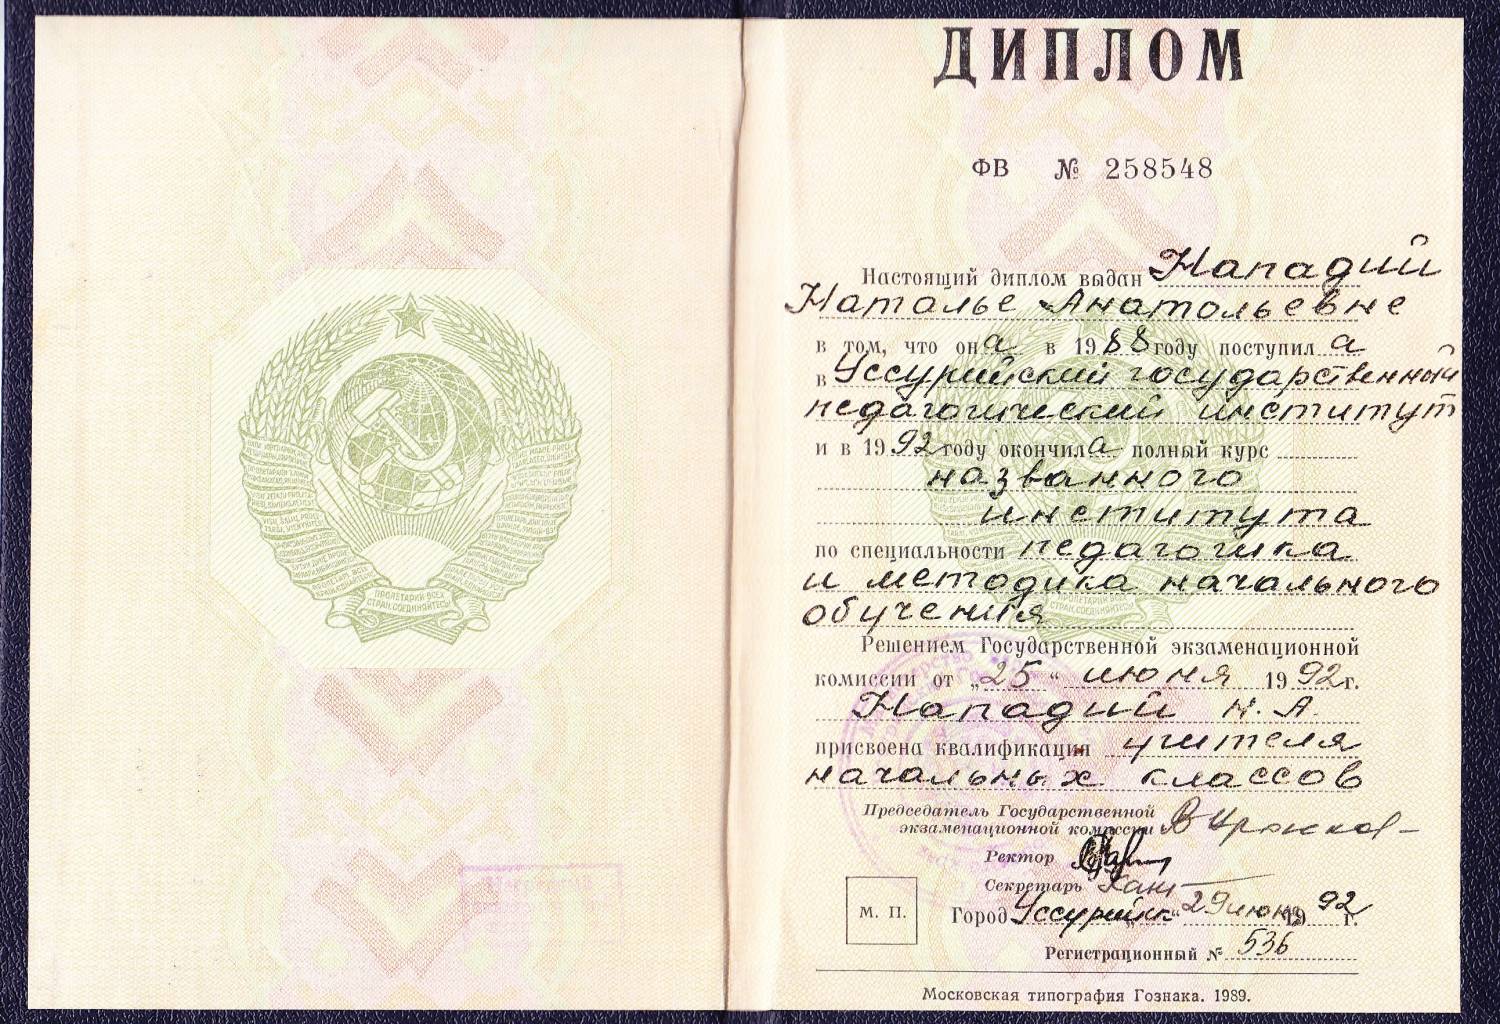 ДИПЛОМ
ФВ № 258548
Настоящий диплом выдан Нападий
Наталье Анатольевне
в том, что она в 1988 году поступила
в Уссурийский государственный
педагогический институт
и в 1992 году окончила полный курс
названного
института
по специальности педагогика
и методика начального
обучения
Решением Государственной экзаменационной
комиссии от „25“ июня 1992 г.
Нападий Н. А.
присвоена квалификация учителя
начальных классов
Председатель Государственной
экзаменационной комиссии
Ректор
Секретарь
М. П.
Город Уссурийск „29 июня 1992 г.
Регистрационный № 536
Московская типография Гознака. 1989.
ПРОЛЕТАРИИ ВСЕХ
СТРАН, СОЕДИНЯЙТЕСЬ!